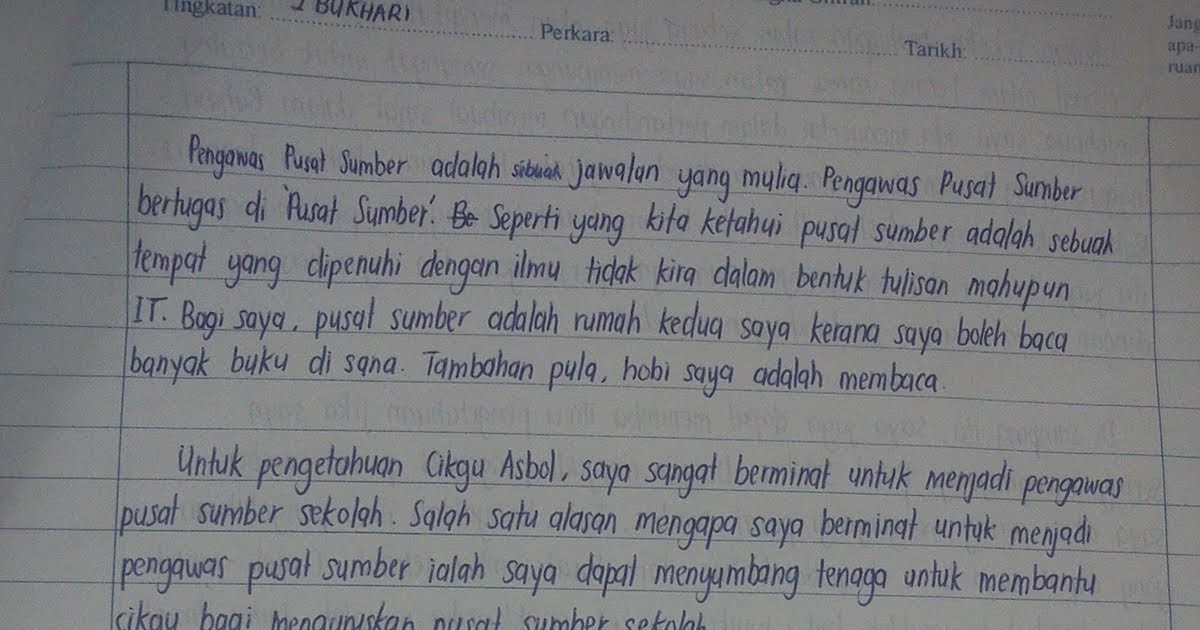 Tingkatan: 1 BUKHARI
Perkara:
Tarikh:
Jang
apa-
ruan
Pengawas Pusat Sumber adalah sebuah jawatan yang mulia. Pengawas Pusat Sumber
bertugas di 'Pusat Sumber'. Be Seperti yang kita ketahui pusat sumber adalah sebuah
tempat yang dipenuhi dengan ilmu tidak kira dalam bentuk tulisan mahupun
IT. Bagi saya, pusat sumber adalah rumah kedua saya kerana saya boleh baca
banyak buku di sana. Tambahan pula, hobi saya adalah membaca.
Untuk pengetahuan Cikgu Asbol, saya sangat berminat untuk menjadi pengawas
pusat sumber sekolah. Salah satu alasan mengapa saya berminat untuk menjadi
pengawas pusat sumber ialah saya dapat menyumbang tenaga untuk membantu
cikgu bagi menguruskan pusat sumber sekolah